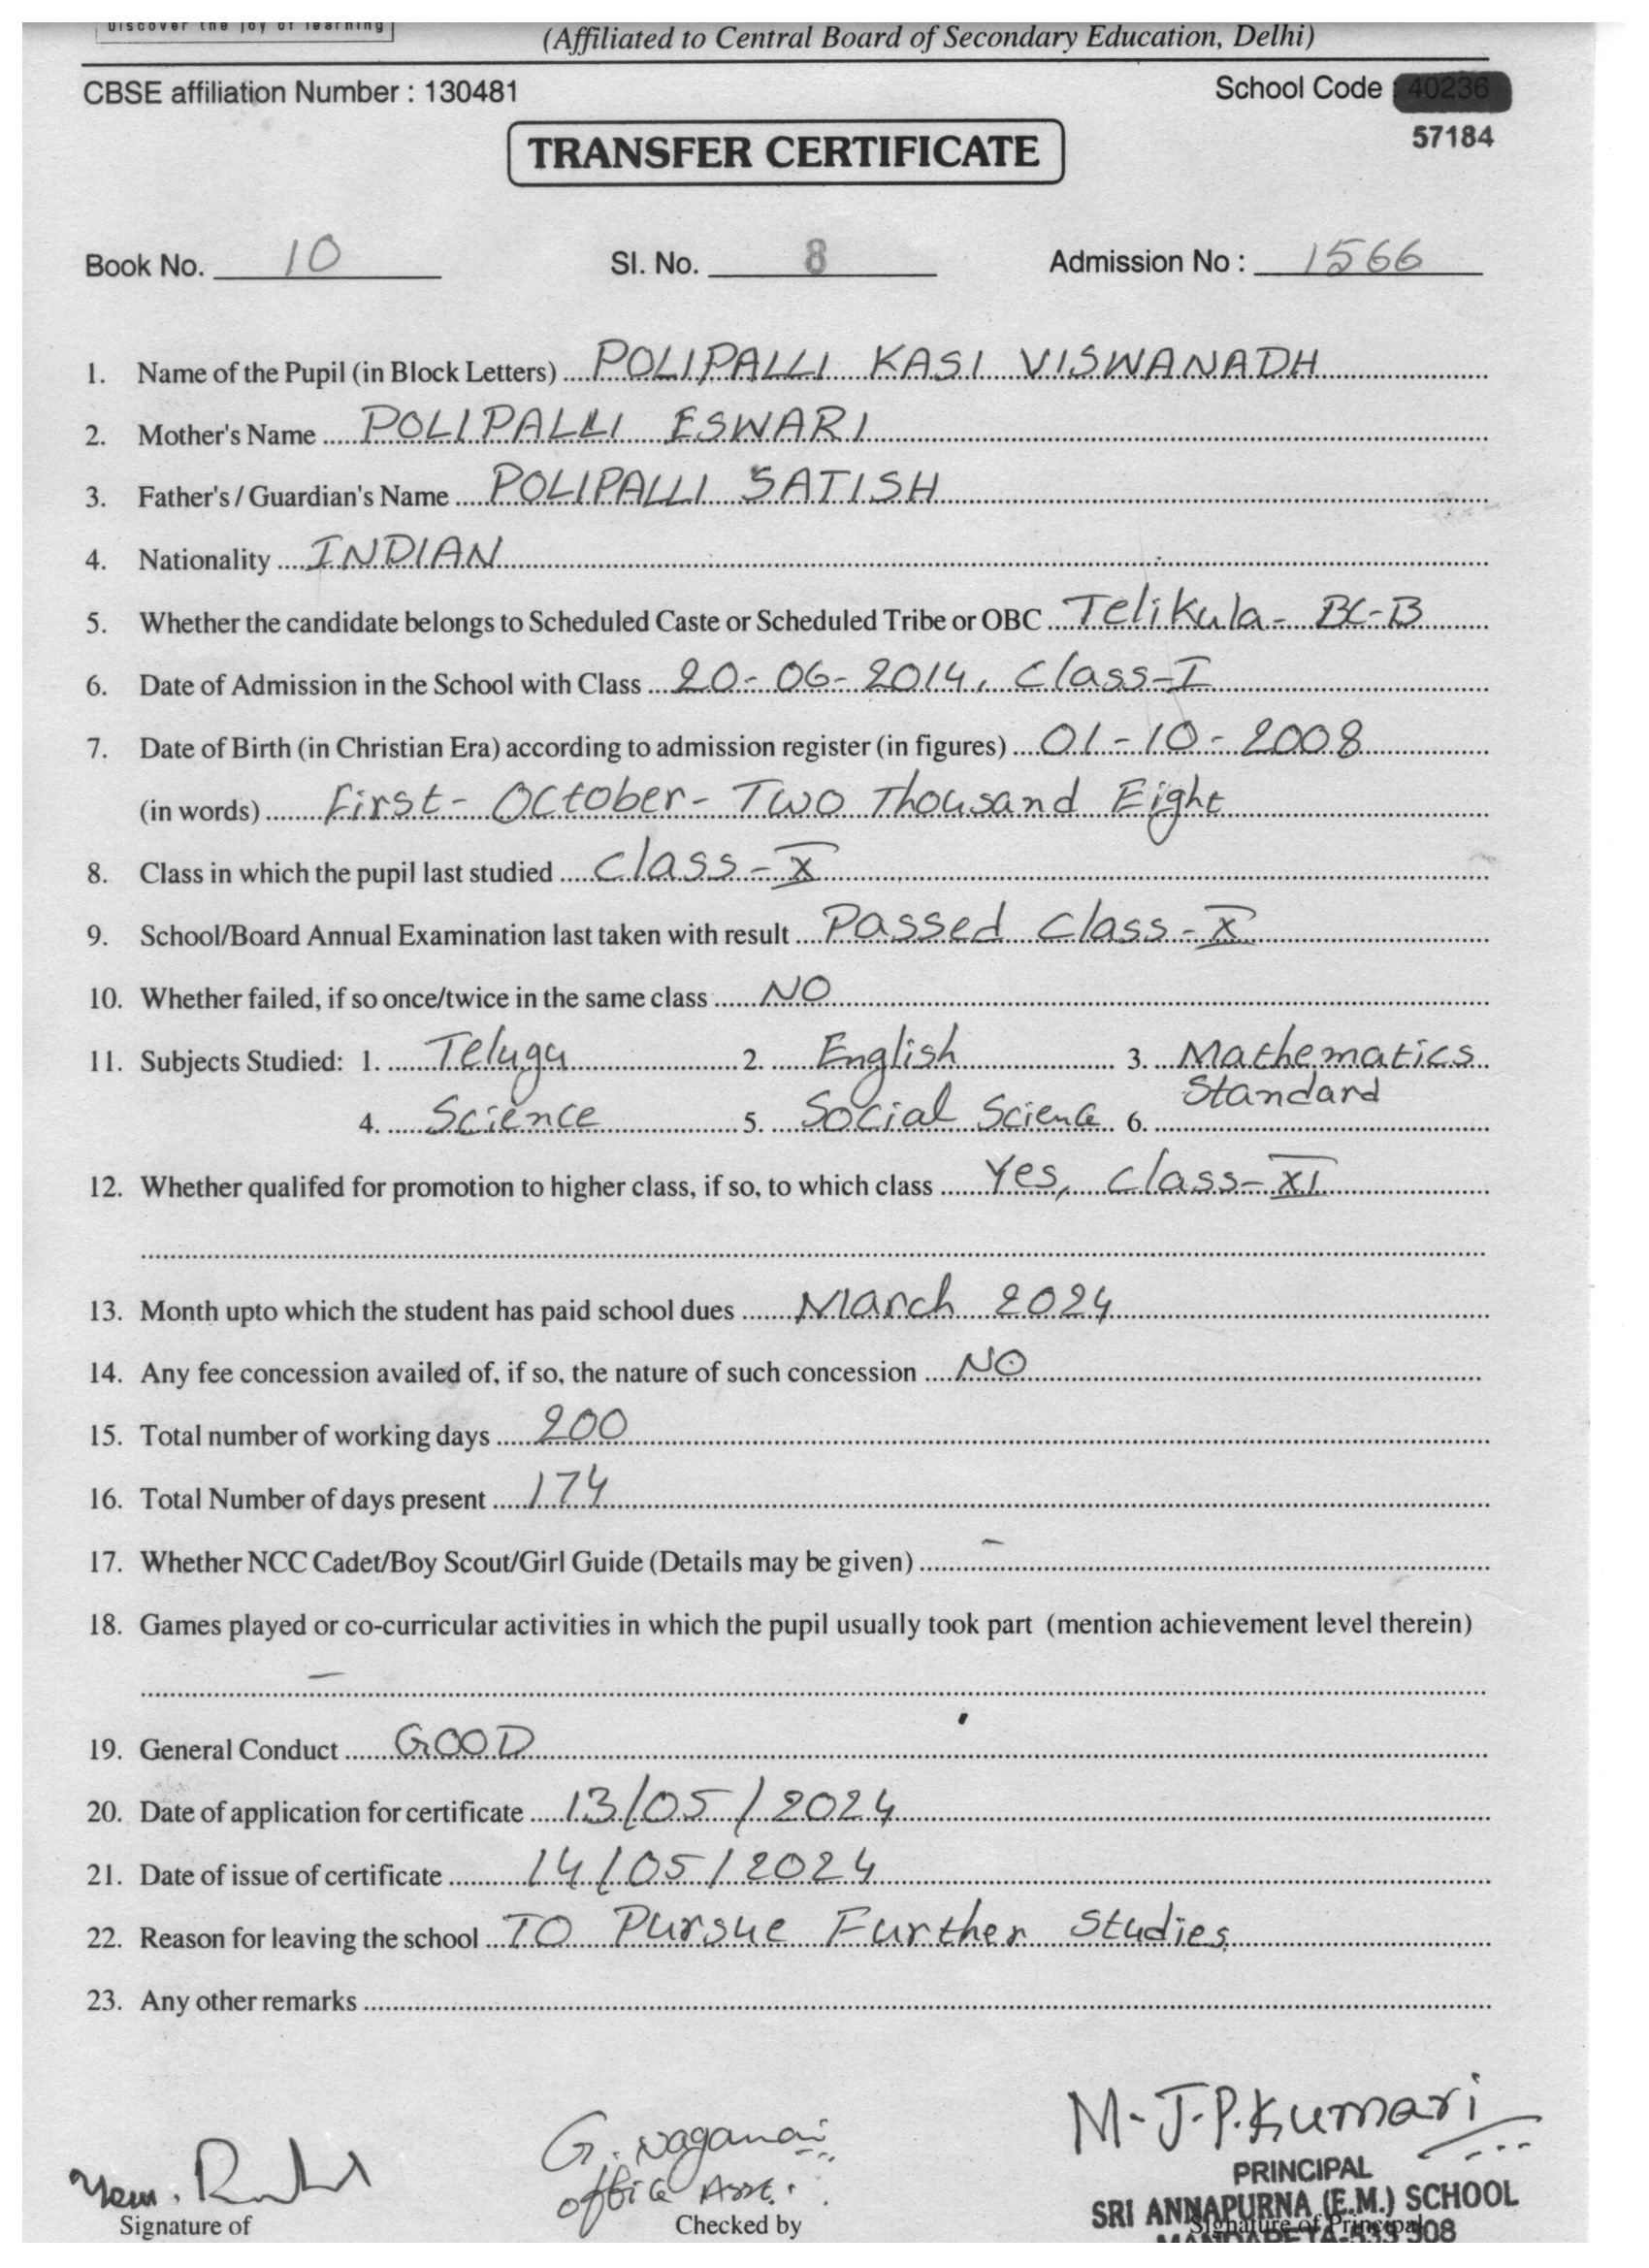 Discover the joy of learning
(Affiliated to Central Board of Secondary Education, Delhi)
CBSE affiliation Number : 130481 School Code 40236
57184
TRANSFER CERTIFICATE
Book No. 10 Sl. No. 8 Admission No : 1566
1. Name of the Pupil (in Block Letters) POLIPALLI KASI VISWANADH
2. Mother's Name POLIPALLI ESWARI
3. Father's / Guardian's Name POLIPALLI SATISH
4. Nationality INDIAN
5. Whether the candidate belongs to Scheduled Caste or Scheduled Tribe or OBC Telikula- BC-B
6. Date of Admission in the School with Class 20-06-2014, Class-I
7. Date of Birth (in Christian Era) according to admission register (in figures) 01-10-2008
(in words) First- October- Two Thousand Eight
8. Class in which the pupil last studied Class-X
9. School/Board Annual Examination last taken with result Passed Class-X
10. Whether failed, if so once/twice in the same class NO
11. Subjects Studied: 1. Telugu 2. English 3. Mathematics
Standard
4. Science 5. Social Science 6.
12. Whether qualifed for promotion to higher class, if so, to which class Yes, Class-XI
13. Month upto which the student has paid school dues March 2024
14. Any fee concession availed of, if so, the nature of such concession NO
15. Total number of working days 200
16. Total Number of days present 174
17. Whether NCC Cadet/Boy Scout/Girl Guide (Details may be given) -
18. Games played or co-curricular activities in which the pupil usually took part (mention achievement level therein)
-
19. General Conduct GOOD
20. Date of application for certificate 13/05/2024
21. Date of issue of certificate 14/05/2024
22. Reason for leaving the school TO Pursue Further Studies
23. Any other remarks
M.J.P.Kumari
PRINCIPAL
SRI ANNAPURNA (E.M.) SCHOOL
Signature of Checked by Signature of Principal
MANDAPETA-533 308